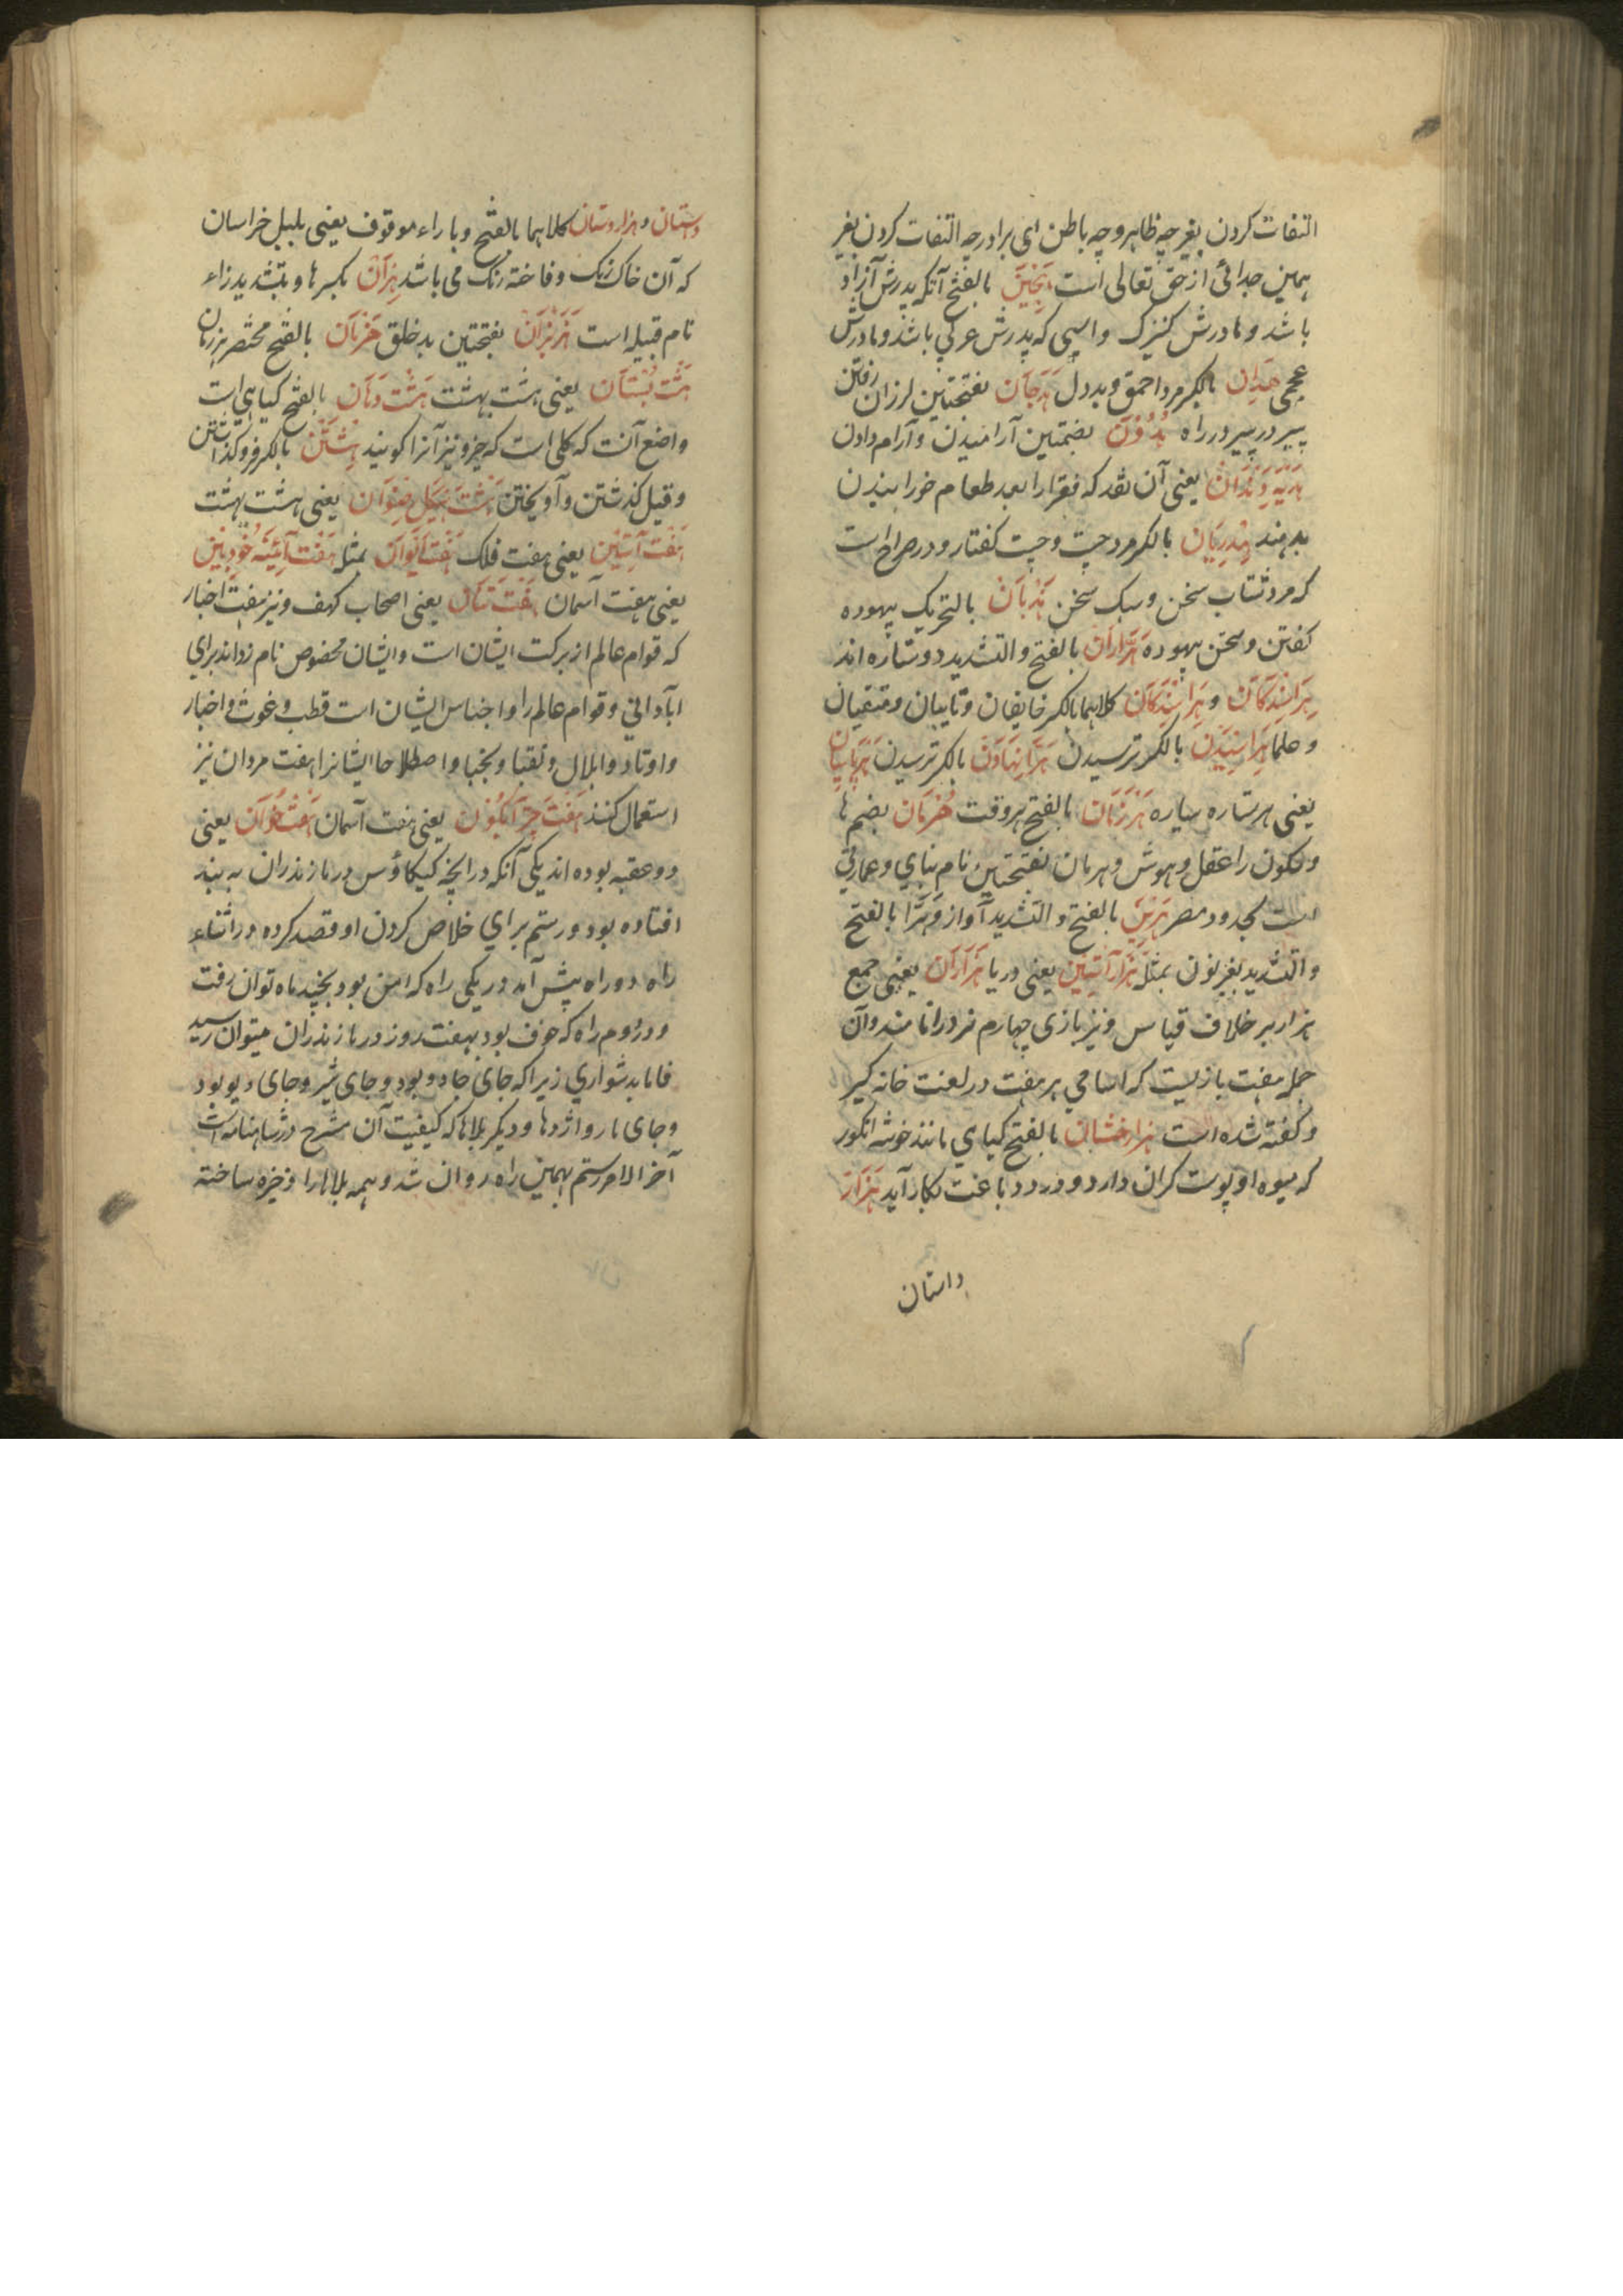 التفات کردن بغیر چه ظاهر و چه باطن ای برادر چه التفات کردن بغیر
همین جدائی از حق تعالی است هجین بالفتح آنکه پدرش آزاد
باشد و مادرش کنیزک و اسپی که پدرش عربی باشد و مادرش
عجمی هدان بالکسر مرد احمق و بددل هدجان بفتحتین لرزان رفتن
پیر در پیر در راه هدون بضمتین آرامیدن و آرام دادن
هدیه دندان یعنی آن نقد که فقرا را بعد طعام خورانیدن
بدهند هذریان بالکسر مرد چست و چست کفتار و در صراح است
که مرد شتاب سخن و سبک سخن هذبان بالتحریک بیهوده
کفتن و سخن بیهوده هراران بالفتح و التشدید دو ستاره اند
هراسندکان و هراشندکان کلاهما بالکسر خایفان و تایبان و متقیان
و حلما هراسیدن بالکسر ترسیدن هرانهادن بالکسر ترسیدن هرپاسبان
یعنی هر ستاره سیاره هرزمان بالفتح هر وقت هرمان بضم ها
و سکون را عقل و هوش و هرمان بفتحتین نام بنای و عمارتی
است بحدود مصر هرین بالفتح و التشدید آواز و هرا بالفتح
و التشدید بغیر نون بمثله هزار آستین یعنی دریا هزاران یعنی جمع
هزار بر خلاف قیاس و نیز بازی چهارم نرد را نامند و آن
جمله هفت بازیست که اسامی هر هفت در لغت خانه کیر
و کفته شده است هزار خشان بالفتح کیاهی مانند خوشه انکور
که میوه او پوست کران دارد و در دباغت بکار آید هزار
داستان
دستان و هزاروستان کلاهما بالفتح و با راء موقوف یعنی بلبل خراسان
که آن خاک رنک و فاخته رنک می باشد هزان بکسر ها و بتشدید زاء
نام قبیله است هزنبران بفتحتین بدخلق هزمان بالفتح مختصر هرزمان
هشت بستان یعنی هشت بهشت هشت دهان بالفتح کیاهی است
واضح آنست که کلی است که چیز و نیز آنرا کویند هشتن بالکسر فروکذاشتن
و قیل کذشتن و آویختن هشت هیکل رضوان یعنی هشت بهشت
هفت آستین یعنی هفت فلک هفت ایوان بمثله هفت آئینه خودبین
یعنی هفت آسمان هفت تنان یعنی اصحاب کهف و نیز هفت اخیار
که قوام عالم از برکت ایشان است و ایشان مخصوص نام زد اند برای
آبادانی و قوام عالم را و اجناس ایشان است قطب و غوث و اخیار
و اوتاد و ابدال و نقبا و نجبا و اصطلاحا ایشانرا هفت مردان نیز
استعمال کنند هفت چتر آبکون یعنی هفت آسمان هفت خوان یعنی
دو عقبه بوده اند یکی آنکه در آنچه کیکاؤس در مازندران به بند
افتاده بود و رستم برای خلاص کردن او قصد کرده در اثناء
راه دو راه پیش آمد در یکی راه که امن بود بچند ماه توان رفت
و در دوم راه که خوف بود بهفت روز در مازندران میتوان رسید
فاما بدشواری زیرا که جای جادو بود و جای شیر و جای دیو بود
و جای مار و اژدها و دیکر بلاها که کیفیت آن مشرح در شاهنامه است
آخر الامر رستم بهمین راه روان شد و همه بلاها را ذخیره ساخته